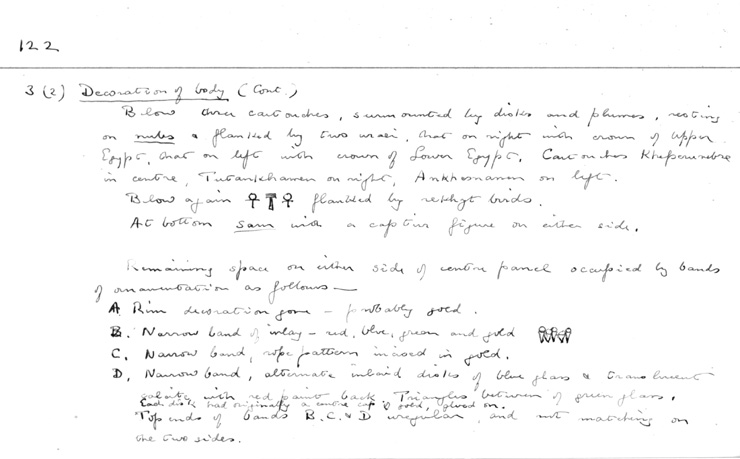 122
3 (2) Decoration of body (Cont.)
Below three cartouches, surmounted by disks and plumes, resting
on nubs & flanked by two uraei, that on right with crown of Upper
Egypt, that on left with crown of Lower Egypt. Cartouches Kheperunebre
in centre, Tutankhamen on right, Ankhesnamen on left.
Below again flanked by rekhyt birds.
At bottom sam with a captive figure on either side.
Remaining space on either side of centre panel occupied by bands
of ornamentation as follows—
A. Rim decoration gone – probably gold.
B. Narrow band of inlay – red, blue, green and gold
C. Narrow band, rope pattern incised in gold.
D. Narrow band, alternate inlaid disks of blue glass & translucent
calcite with red paint back. Triangles between of green glass.
Each disk had originally a centre cap of gold, glued on.
Top ends of bands B. C. & D irregular, and not matching on
the two sides.